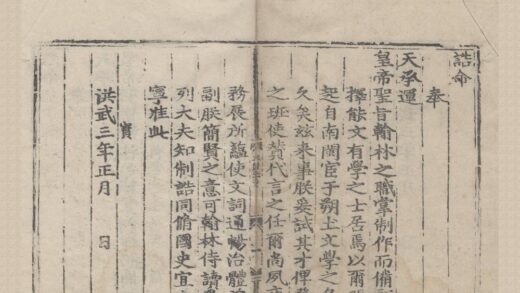 誥命
奉
天承運
皇帝聖旨翰林之職掌制作而備
擇能文有學之士居焉以爾
起自南閩宦于朔土文學之
久矣玆來事朕爰試其才俾
之班使賛代言之任爾尚夙
務展所蘊使文詞通暢治體
副朕簡賢之意可翰林侍讀
列大夫知制誥同脩國史宜
寧准此
寶
洪武三年正月 日